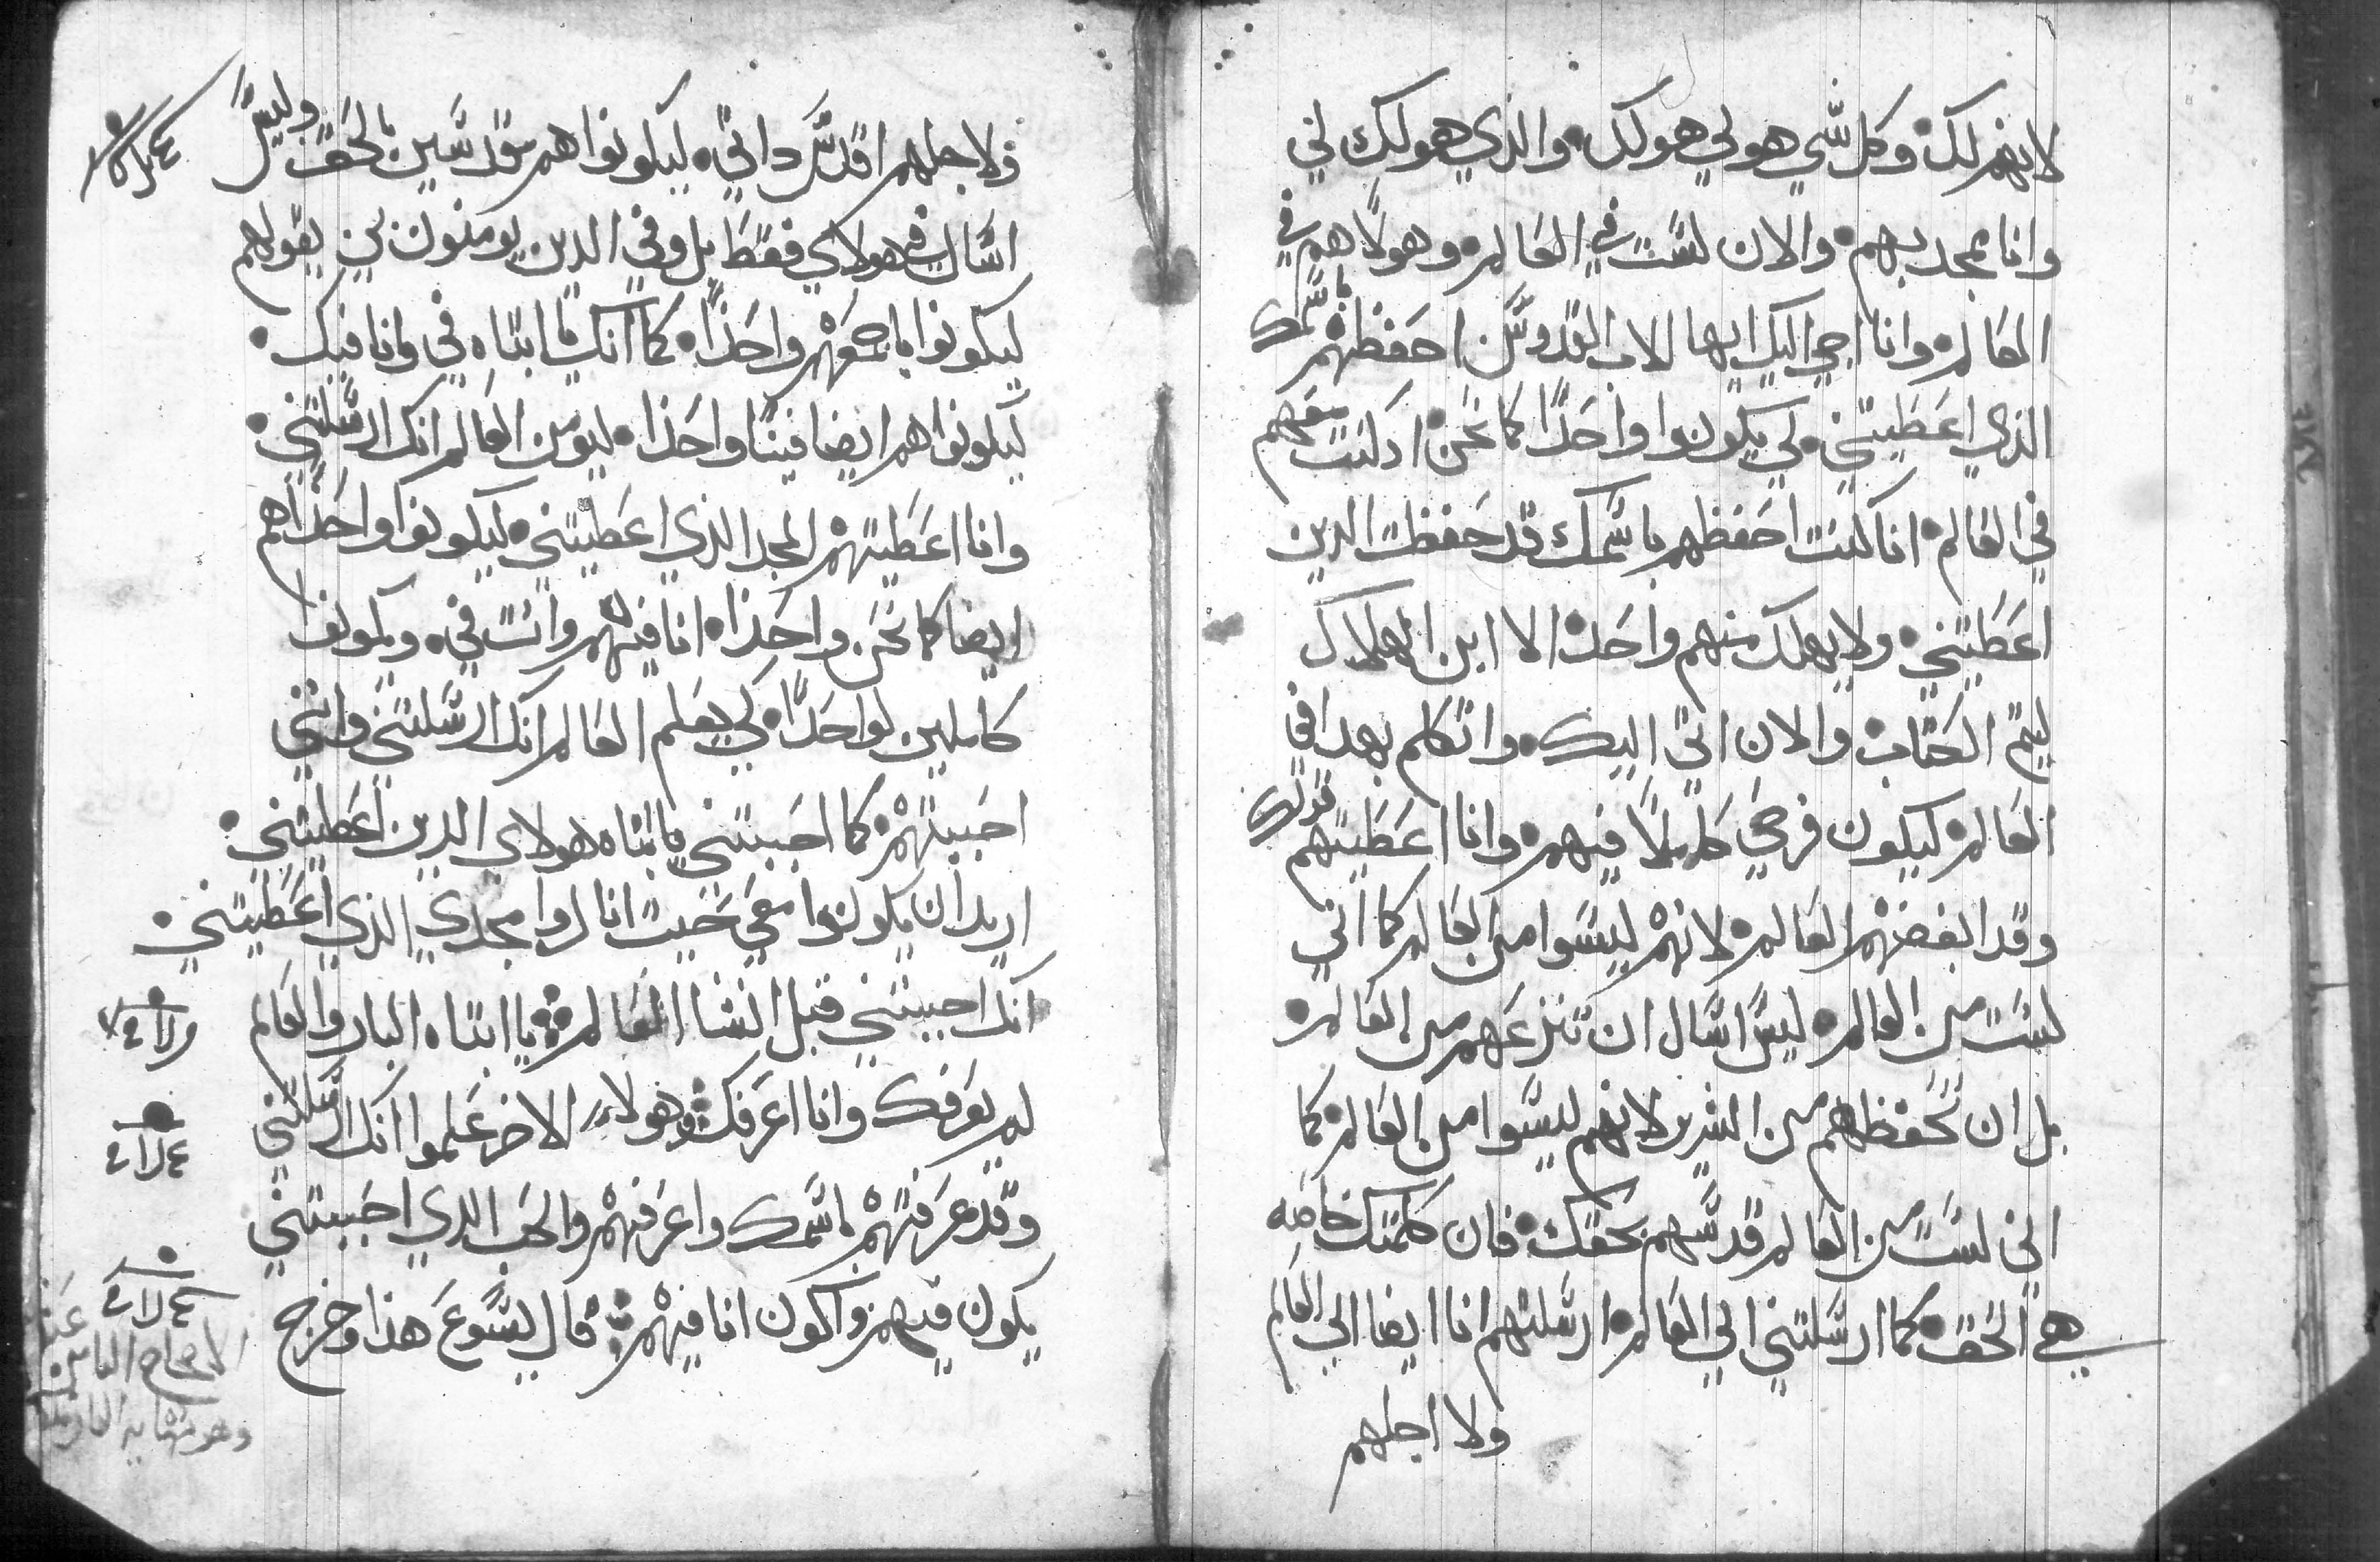 لانهم لك وكل شي هو لي هو لك والذي هو لك لي
وانا ممجد بهم والان لست في العالم وهولا هم في
العالم وانا اجي اليك ايها الاب القدوس احفظهم باسمك
الذي اعطيتني لكي يكونوا واحدا كما نحن اد كنت معهم
في العالم انا كنت احفظهم باسمك قد حفظت الدين
اعطيتني ولا يهلك منهم واحد الا ابن الهلاك
ليتم الكتاب والان اتي اليك واتكلم بهدا في
العالم ليكون فرحي كاملا فيهم وانا اعطيتهم قولك
وقد ابغضهم العالم لانهم ليسوا من العالم كما اني
لست من العالم ليس اسال ان تنزعهم من العالم
بل ان تحفظهم من الشرير لانهم ليسوا من العالم كما
اني لست من العالم قدسهم بحقك فان كلمتك خاصه
هي الحق كما ارسلتني الي العالم ارسلتهم انا ايضا الي العالم
ولا اجلهم
ولاجلهم اقدس داتي ليكونوا هم مقدسين بالحق وليس
اسال في هولاي فقط بل وفي الدين يومنون بي بقولهم
ليكونوا باجمعهم واحدا كما انك يا ابتاه في وانا فيك
ليكونوا هم ايضا فينا واحدا ليومن العالم انك ارسلتني
وانا اعطيتهم المجد الذي اعطيتني ليكونوا واحدا هم
ايضا كما نحن واحدا انا فيهم وانت في ويكونوا
كاملين لواحدا لكي يعلم العالم انك ارسلتني وانني
احببتهم كما احببتني يا ابتاه هولاي الدين اعطيتني
اريد ان يكونوا معي حيث انا ليروا مجدي الذي اعطيتني
انك احببتني قبل انشا العالم يا ابتاه البار والعالم
لم يعرفك وانا اعرفك وهولاء الاخر علموا انك ارسلتني
وقد عرفتهم باسمك واعرفهم والحب الدي احببتني
يكون فيهم واكون انا فيهم قال يسوع هذا وخرج